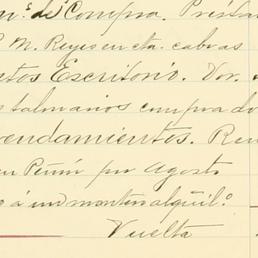 de Compra. Prést
P. M. Reyes en cta. cabras
tos Escritorio. Dor.
talmanios comprado
endamientos. Ren
en Penin por Agosto
o á un montn alquil.º
Vuelta